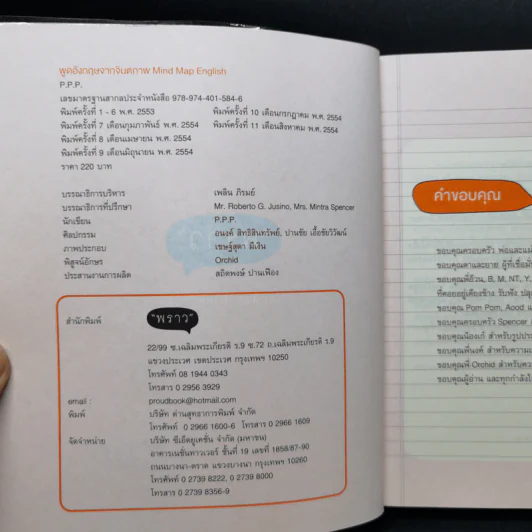 พูดอังกฤษจากจินตภาพ Mind Map English
P.P.P.
เลขมาตรฐานสากลประจำหนังสือ 978-974-401-584-6
พิมพ์ครั้งที่ 1 - 6 พ.ศ. 2553 พิมพ์ครั้งที่ 10 เดือนกรกฎาคม พ.ศ. 2554
พิมพ์ครั้งที่ 7 เดือนกุมภาพันธ์ พ.ศ. 2554 พิมพ์ครั้งที่ 11 เดือนสิงหาคม พ.ศ. 2554
พิมพ์ครั้งที่ 8 เดือนเมษายน พ.ศ. 2554
พิมพ์ครั้งที่ 9 เดือนมิถุนายน พ.ศ. 2554
ราคา 220 บาท
บรรณาธิการบริหาร เพลิน ภิรมย์
บรรณาธิการที่ปรึกษา Mr. Roberto G. Jusino, Mrs. Mintra Spencer
นักเขียน P.P.P.
ศิลปกรรม อนงค์ สิทธิสินทรัพย์, ปานชัย เอื้อชัยวิวัฒน์
ภาพประกอบ เชษฐ์สุดา มีเงิน
พิสูจน์อักษร Orchid
ประสานงานการผลิต สถิตพงษ์ ปานเฟือง
สำนักพิมพ์ "พราว"
22/99 ซ.เฉลิมพระเกียรติ ร.9 ซ.72 ถ.เฉลิมพระเกียรติ ร.9
แขวงประเวศ เขตประเวศ กรุงเทพฯ 10250
โทรศัพท์ 08 1944 0343
โทรสาร 0 2956 3929
email : proudbook@hotmail.com
พิมพ์ บริษัท ด่านสุทธาการพิมพ์ จำกัด
โทรศัพท์ 0 2966 1600-6 โทรสาร 0 2966 1609
จัดจำหน่าย บริษัท ซีเอ็ดยูเคชั่น จำกัด (มหาชน)
อาคารเนชั่นทาวเวอร์ ชั้นที่ 19 เลขที่ 1858/87-90
ถนนบางนา-ตราด แขวงบางนา กรุงเทพฯ 10260
โทรศัพท์ 0 2739 8222, 0 2739 8000
โทรสาร 0 2739 8356-9
คำขอบคุณ
ขอบคุณครอบครัว พ่อและแม่
ขอบคุณตาและยาย ผู้ที่เชื่อมั่
ขอบคุณพี่อ้วน, B, M, NT, Y,
ที่คอยอยู่เคียงข้าง รับฟัง ปลุ
ขอบคุณ Pom Pom, Aood แ
ขอบคุณครอบครัว Spencer
ขอบคุณน้องเก๋ สำหรับรูปประ
ขอบคุณพี่นงค์ สำหรับความ
ขอบคุณพี่ Orchid สำหรับคว
ขอบคุณผู้อ่าน และทุกกำลังใ